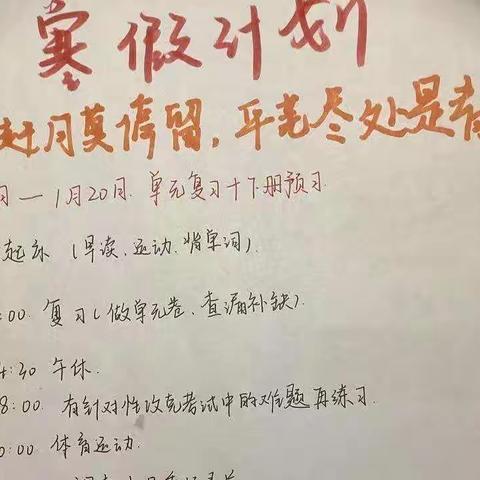 寒假计划
赶月莫停留,平芜尽处是春
月一1月20日.单元复习+下册预习.
起床(早读、运动、背单词).
:00 复习(做单元卷、查漏补缺).
4:30 午休.
8:00. 有针对性攻克考试中的难题再练习.
0:00 体育运动.